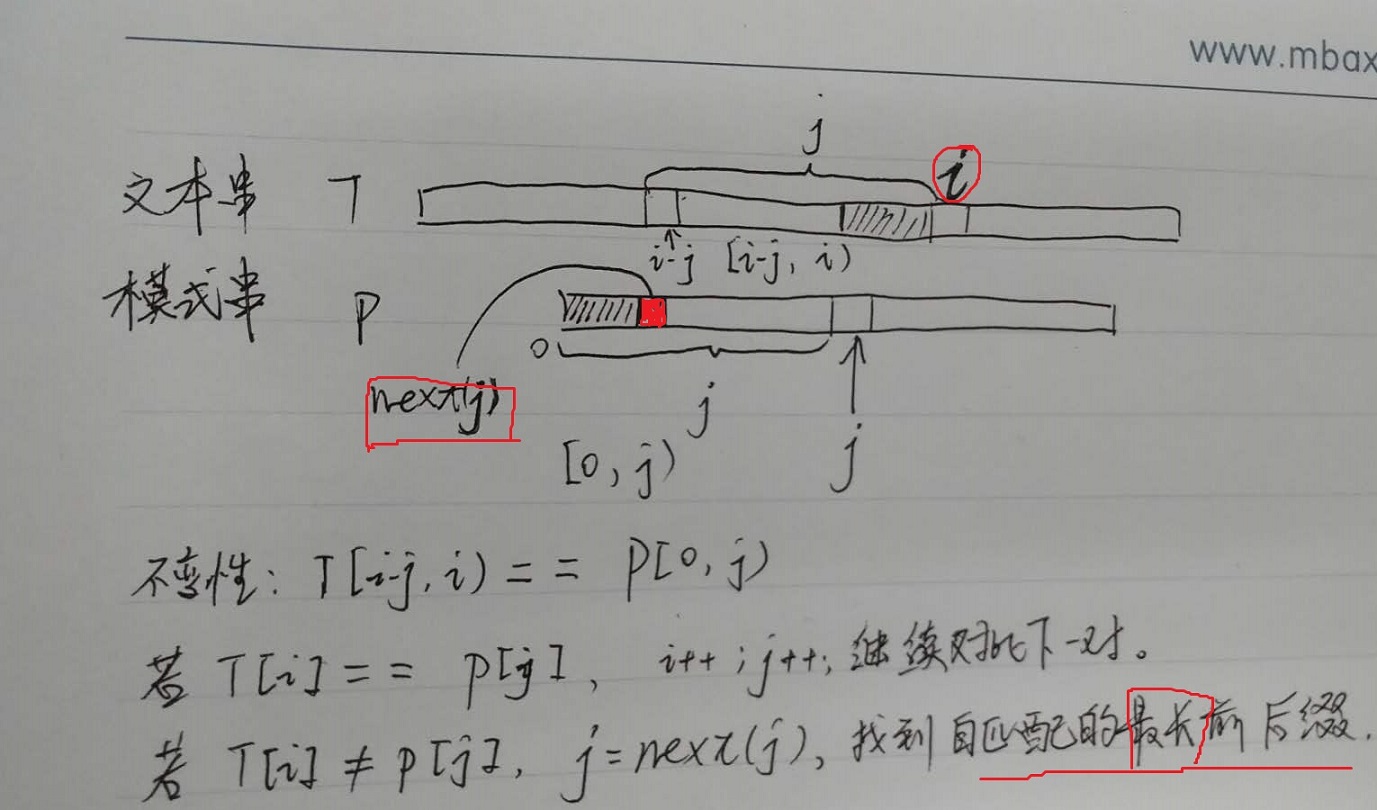 www.mbax
j
文本串 T i
i-j [i-j, i)
模式串 P
0
next(j) j
[0, j) j
不变性: T[i-j, i) == P[0, j)
若 T[i] == P[j], i++; j++; 继续对比下一对。
若 T[i] ≠ P[j], j=next(j), 找到自匹配的最长前后缀.